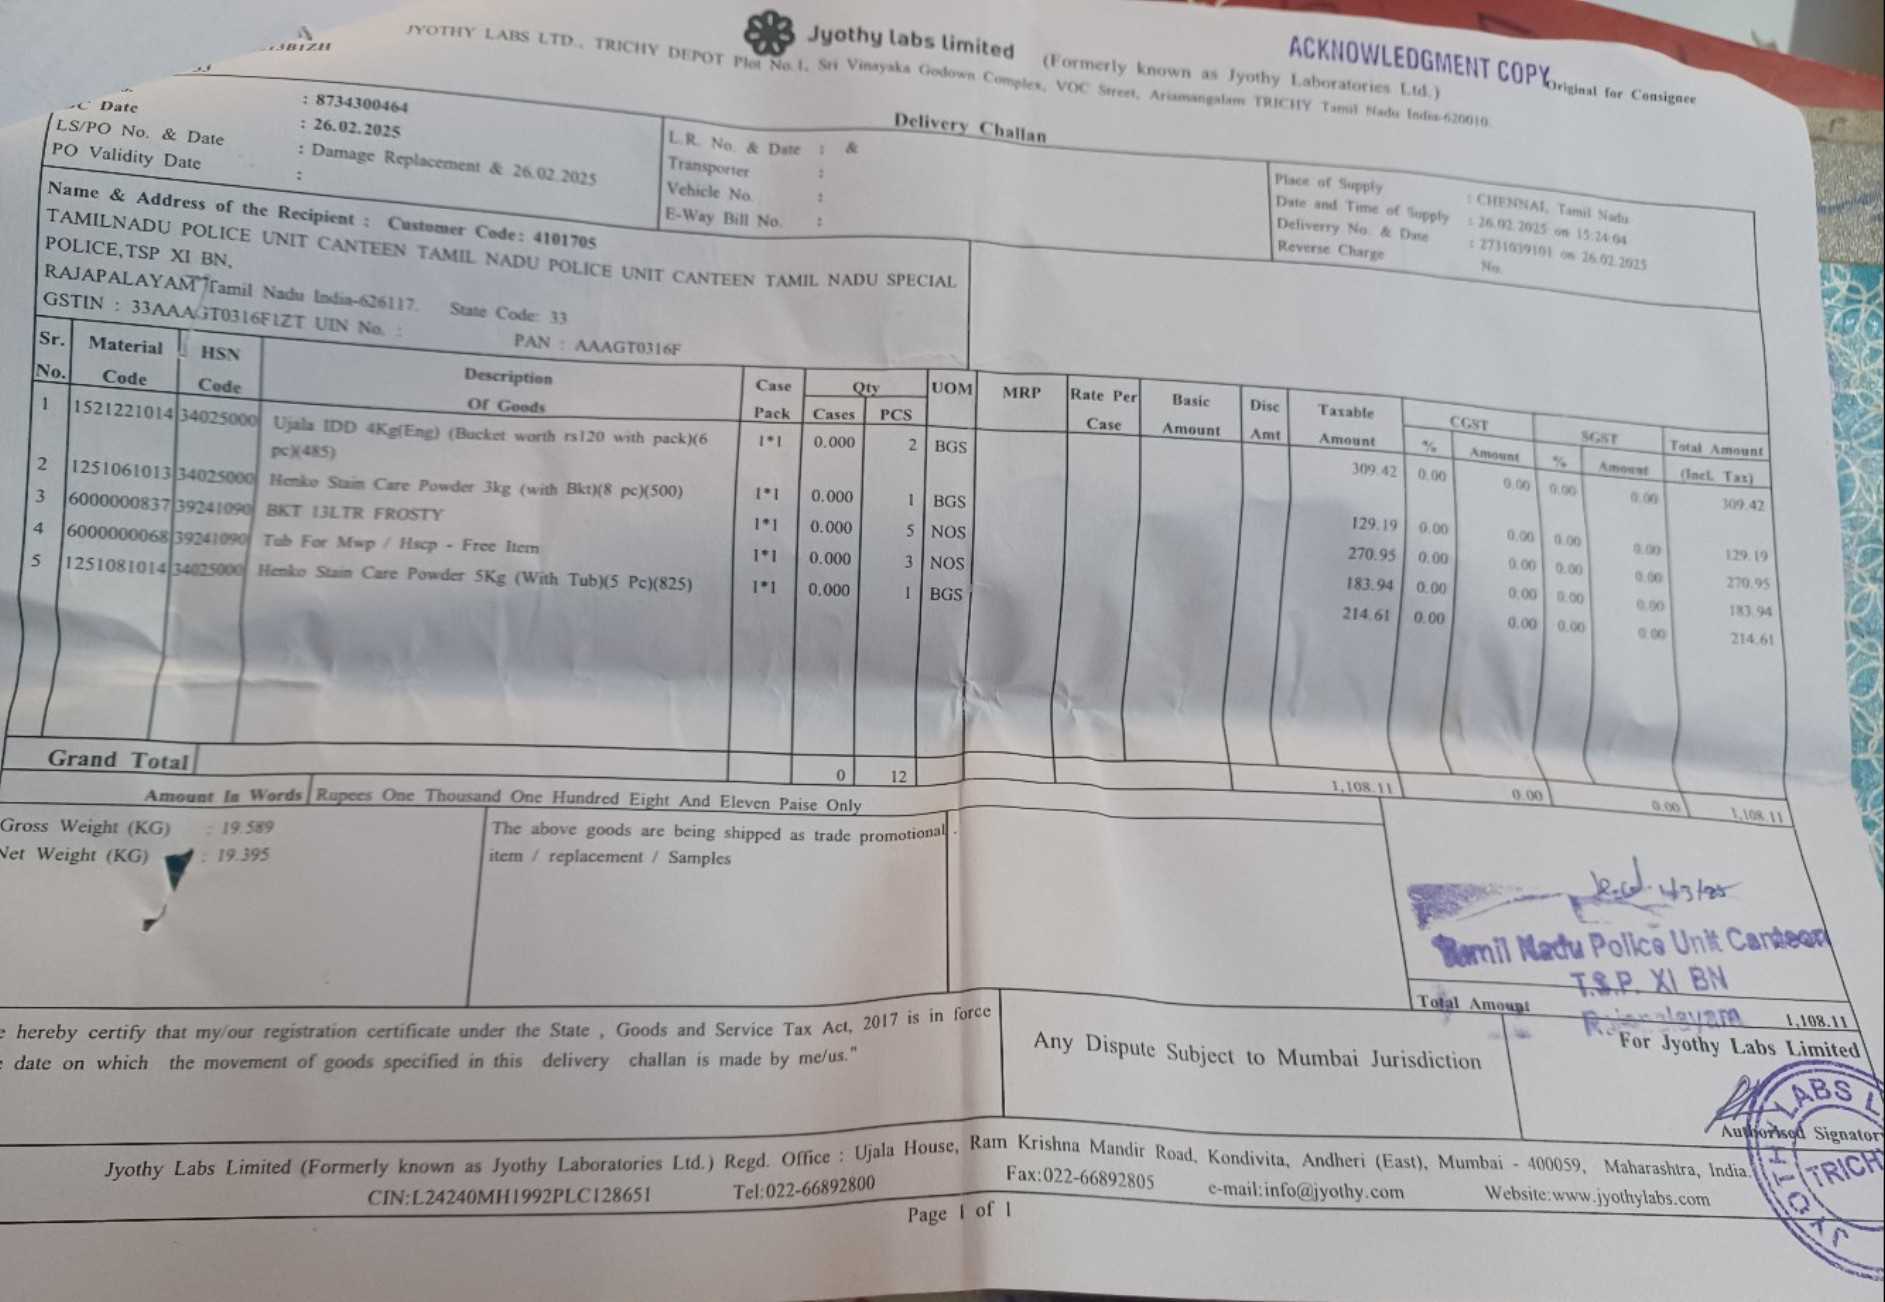 Jyothy labs limited (Formerly known as Jyothy Laboratories Ltd.)
ACKNOWLEDGMENT COPY
Original for Consignee
JYOTHY LABS LTD., TRICHY DEPOT Plot No.1, Sri Vinayaka Godown Complex, VOC Street, Ariamangalam TRICHY Tamil Nadu India-620010.
Delivery Challan
: 8734300464
Date : 26.02.2025
LS/PO No. & Date : Damage Replacement & 26.02.2025
PO Validity Date :
L.R. No. & Date : &
Transporter :
Vehicle No. :
E-Way Bill No. :
Place of Supply : CHENNAI, Tamil Nadu
Date and Time of Supply : 26.02.2025 on 15:24:04
Deliverry No. & Date : 2731039101 on 26.02.2025
Reverse Charge No.
Name & Address of the Recipient : Customer Code: 4101705
TAMILNADU POLICE UNIT CANTEEN TAMIL NADU POLICE UNIT CANTEEN TAMIL NADU SPECIAL
POLICE,TSP XI BN,
RAJAPALAYAM Tamil Nadu India-626117. State Code: 33
GSTIN : 33AAAGT0316F1ZT UIN No. : PAN : AAAGT0316F
Sr. No. Material Code HSN Code Description Of Goods Case Pack Qty Cases PCS UOM MRP Rate Per Case Basic Amount Disc Amt Taxable Amount CGST % Amount SGST % Amount Total Amount (Incl. Tax)
1 1521221014 34025000 Ujala IDD 4Kg(Eng) (Bucket worth rs120 with pack)(6 pc)(485) 1*1 0.000 2 BGS 309.42 0.00 0.00 0.00 0.00 309.42
2 1251061013 34025000 Henko Stain Care Powder 3kg (with Bkt)(8 pc)(500) 1*1 0.000 1 BGS 129.19 0.00 0.00 0.00 0.00 129.19
3 6000000837 39241090 BKT 13LTR FROSTY 1*1 0.000 5 NOS 270.95 0.00 0.00 0.00 0.00 270.95
4 6000000068 39241090 Tub For Mwp / Hscp - Free Item 1*1 0.000 3 NOS 183.94 0.00 0.00 0.00 0.00 183.94
5 1251081014 34025000 Henko Stain Care Powder 5Kg (With Tub)(5 Pc)(825) 1*1 0.000 1 BGS 214.61 0.00 0.00 0.00 0.00 214.61
Grand Total 0 12 1,108.11 0.00 0.00 1,108.11
Amount In Words Rupees One Thousand One Hundred Eight And Eleven Paise Only
Gross Weight (KG) : 19.589
Net Weight (KG) : 19.395
The above goods are being shipped as trade promotional
item / replacement / Samples
Tamil Nadu Police Unit Canteen
T.S.P. XI BN
Rajapalayam
Total Amount 1,108.11
hereby certify that my/our registration certificate under the State , Goods and Service Tax Act, 2017 is in force
date on which the movement of goods specified in this delivery challan is made by me/us."
Any Dispute Subject to Mumbai Jurisdiction
For Jyothy Labs Limited
Authorised Signator
JYOTHY LABS L
TRICH
Jyothy Labs Limited (Formerly known as Jyothy Laboratories Ltd.) Regd. Office : Ujala House, Ram Krishna Mandir Road, Kondivita, Andheri (East), Mumbai - 400059, Maharashtra, India.
CIN:L24240MH1992PLC128651 Tel:022-66892800 Fax:022-66892805 e-mail:info@jyothy.com Website:www.jyothylabs.com
Page 1 of 1